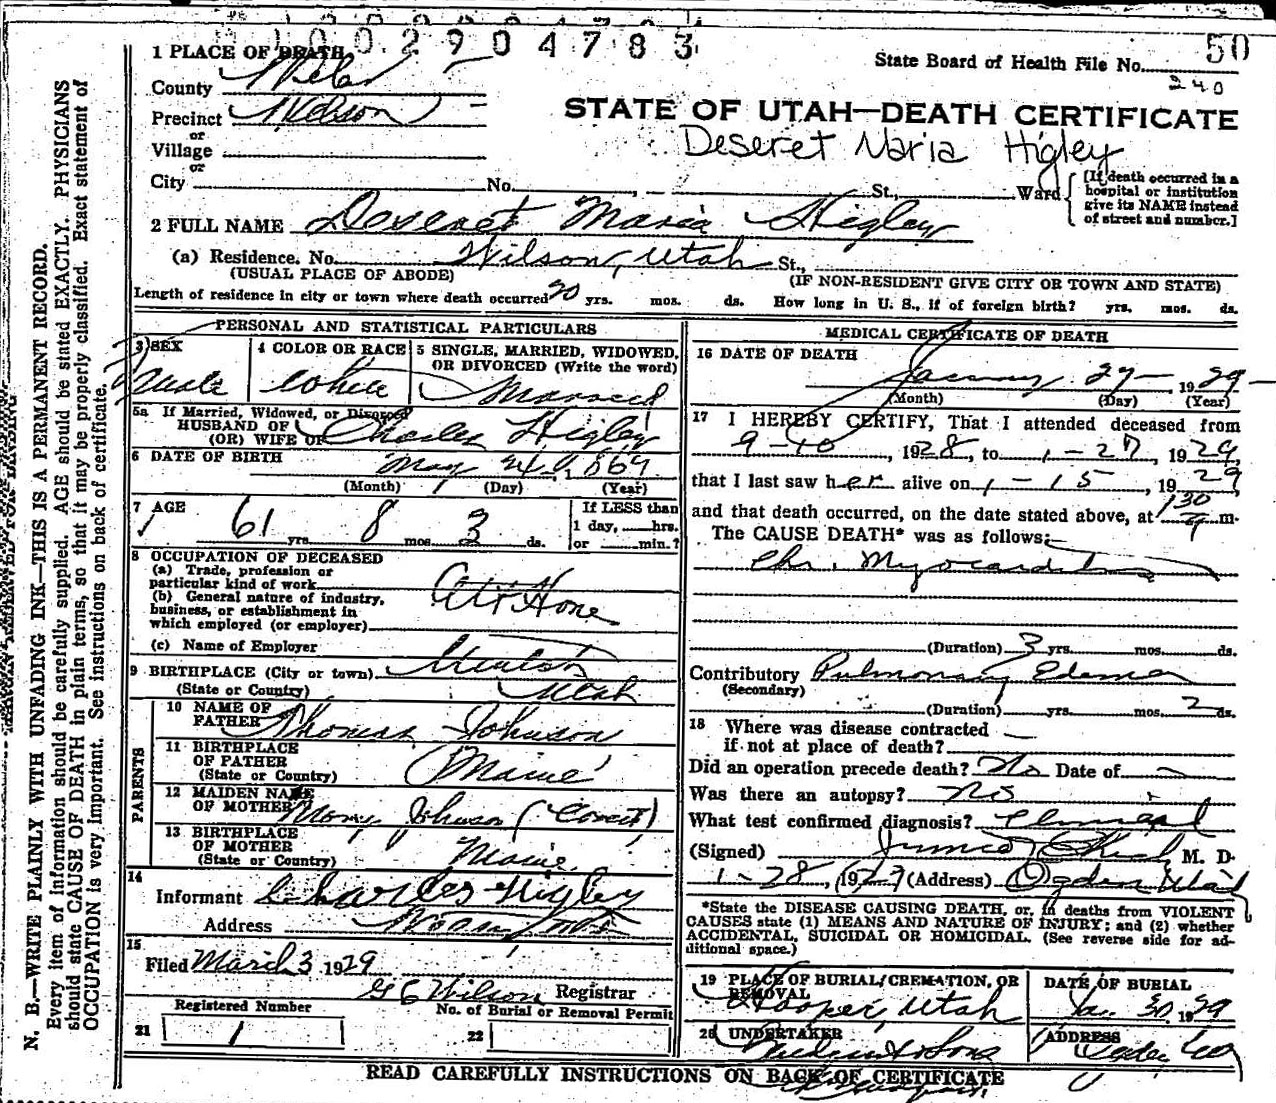 1 0 0 2 9 0 4 7 8 3
50
1 PLACE OF DEATH
State Board of Health File No.
240
County Weber
STATE OF UTAH—DEATH CERTIFICATE
Precinct Wilson
or
Village
Deseret Maria Higley
or
City No. St., Ward
[If death occurred in a
hospital or institution
give its NAME instead
of street and number.]
2 FULL NAME Deseret Maria Higley
(a) Residence. No. Wilson, Utah St.,
(USUAL PLACE OF ABODE) (IF NON-RESIDENT GIVE CITY OR TOWN AND STATE)
Length of residence in city or town where death occurred yrs. mos. ds. How long in U. S., if of foreign birth? yrs. mos. ds.
PERSONAL AND STATISTICAL PARTICULARS
3 SEX
4 COLOR OR RACE White
5 SINGLE, MARRIED, WIDOWED,
OR DIVORCED (Write the word)
Married
5a If Married, Widowed, or Divorced
HUSBAND OF
(OR) WIFE OF Charles Higley
6 DATE OF BIRTH May 24
(Month) (Day) (Year)
7 AGE 61 yrs. 8 mos. 3 ds.
If LESS than
1 day, hrs.
or min.?
8 OCCUPATION OF DECEASED
(a) Trade, profession or
particular kind of work
At Home
(b) General nature of industry,
business, or establishment in
which employed (or employer)
(c) Name of Employer
9 BIRTHPLACE (City or town)
(State or Country) Utah
PARENTS
10 NAME OF
FATHER Thomas Johnson
11 BIRTHPLACE
OF FATHER
(State or Country) Maine
12 MAIDEN NAME
OF MOTHER Mary Johnson
13 BIRTHPLACE
OF MOTHER
(State or Country) Maine
14
Informant Charles Higley
Address
15
Filed March 3 1929
G C Wilson Registrar
Registered Number No. of Burial or Removal Permit
21 1 22
MEDICAL CERTIFICATE OF DEATH
16 DATE OF DEATH
January 27 1929
(Month) (Day) (Year)
17 I HEREBY CERTIFY, That I attended deceased from
9-10, 1928, to 1-27, 1929,
that I last saw her alive on 1-15, 1929,
and that death occurred, on the date stated above, at 130 m.
The CAUSE DEATH* was as follows:
Chr. Myocarditis
(Duration) 3 yrs. mos. ds.
Contributory Pulmonary Edema
(Secondary)
(Duration) yrs. mos. 2 ds.
18 Where was disease contracted
if not at place of death?
Did an operation precede death? No Date of
Was there an autopsy? No
What test confirmed diagnosis? Clinical
(Signed) M. D.
1-28, 1929 (Address) Ogden Utah
*State the DISEASE CAUSING DEATH, or, in deaths from VIOLENT
CAUSES state (1) MEANS AND NATURE OF INJURY; and (2) whether
ACCIDENTAL, SUICIDAL OR HOMICIDAL. (See reverse side for ad-
ditional space.)
19 PLACE OF BURIAL, CREMATION, OR
REMOVAL
Hooper, Utah
DATE OF BURIAL
Jan. 30 1929
20 UNDERTAKER
& Sons
ADDRESS
Ogden
READ CAREFULLY INSTRUCTIONS ON BACK OF CERTIFICATE
N. B.—WRITE PLAINLY WITH UNFADING INK—THIS IS A PERMANENT RECORD.
Every item of information should be carefully supplied. AGE should be stated EXACTLY. PHYSICIANS
should state CAUSE OF DEATH in plain terms, so that it may be properly classified. Exact statement of
OCCUPATION is very important. See instructions on back of certificate.